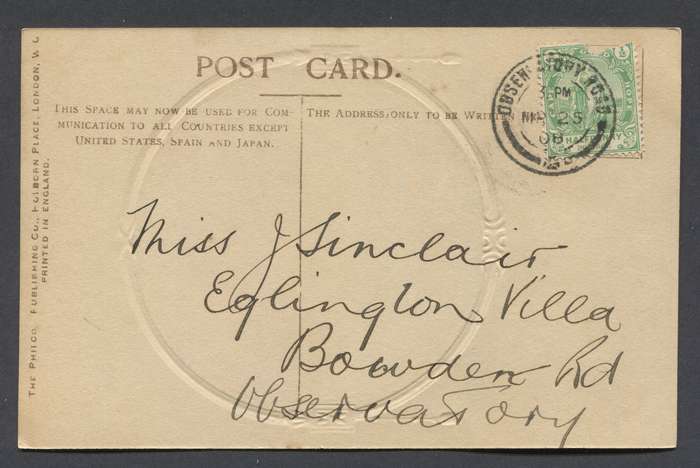 POST CARD.
THIS SPACE MAY NOW BE USED FOR COM-
MUNICATION TO ALL COUNTRIES EXCEPT
UNITED STATES, SPAIN AND JAPAN.
THE ADDRESS ONLY TO BE WRITTEN
OBSERVATORY ROAD
3 PM
25
08
Miss J Sinclair
Eglington Villa
Bowden Rd
Observatory
THE PHILCO PUBLISHING CO., HOLBORN PLACE, LONDON, W.C.
PRINTED IN ENGLAND.